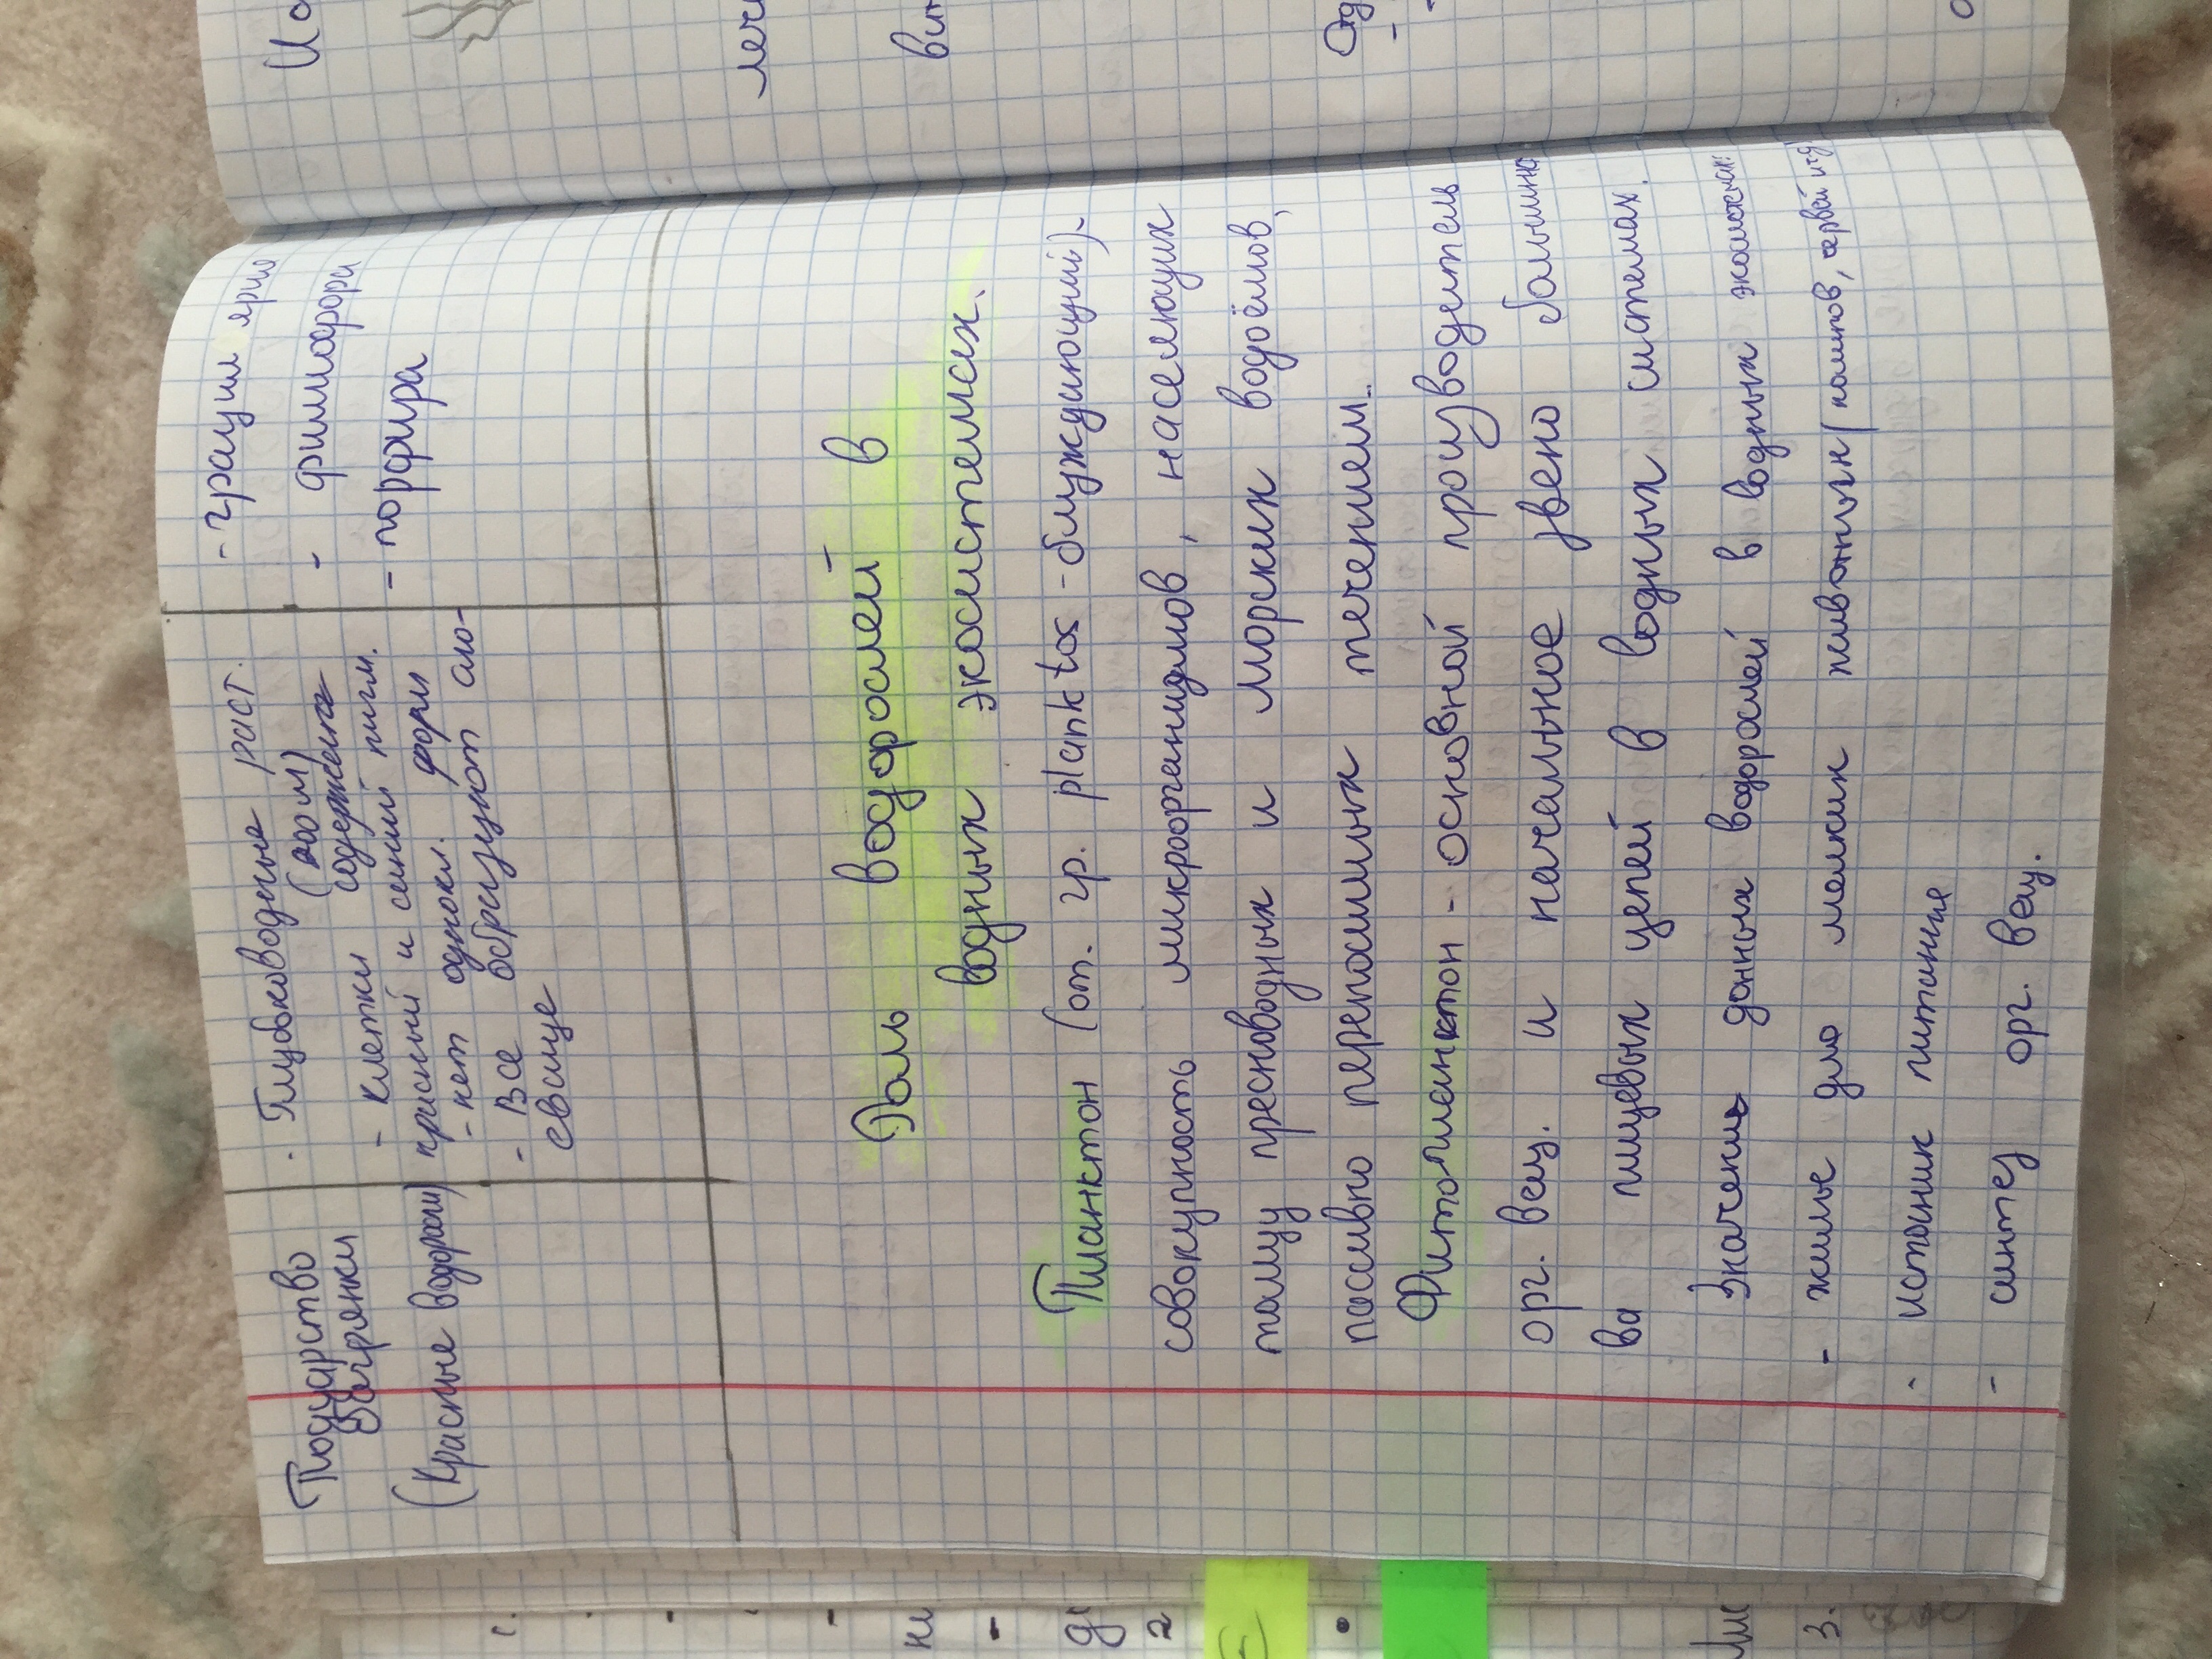 Подцарство
Багрянки
(Красные водоросли)
· Глубоководные раст.
(200 м)
- Клетки содержат
красный и синий пигм.
- нет однокл. форм
- Все образуют сло-
евище
- грацил ярию
- филлофора
- порфира
Роль водорослей в
водных экосистемах.
Планктон (от. гр. planktos - блуждающий) -
совокупность микроорганизмов, населяющих
толщу пресноводных и морских водоёмов,
пассивно переносимых течением.
Фитопланктон - основной производитель
орг. вещ. и начальное звено большинст
ва пищевых цепей в водных системах.
Значение донных водорослей в водных экосистемах:
- жильё для мелких животных (
червей и
- источник питания
- синтез орг. вещ.
ни
2
3.
леч
вит